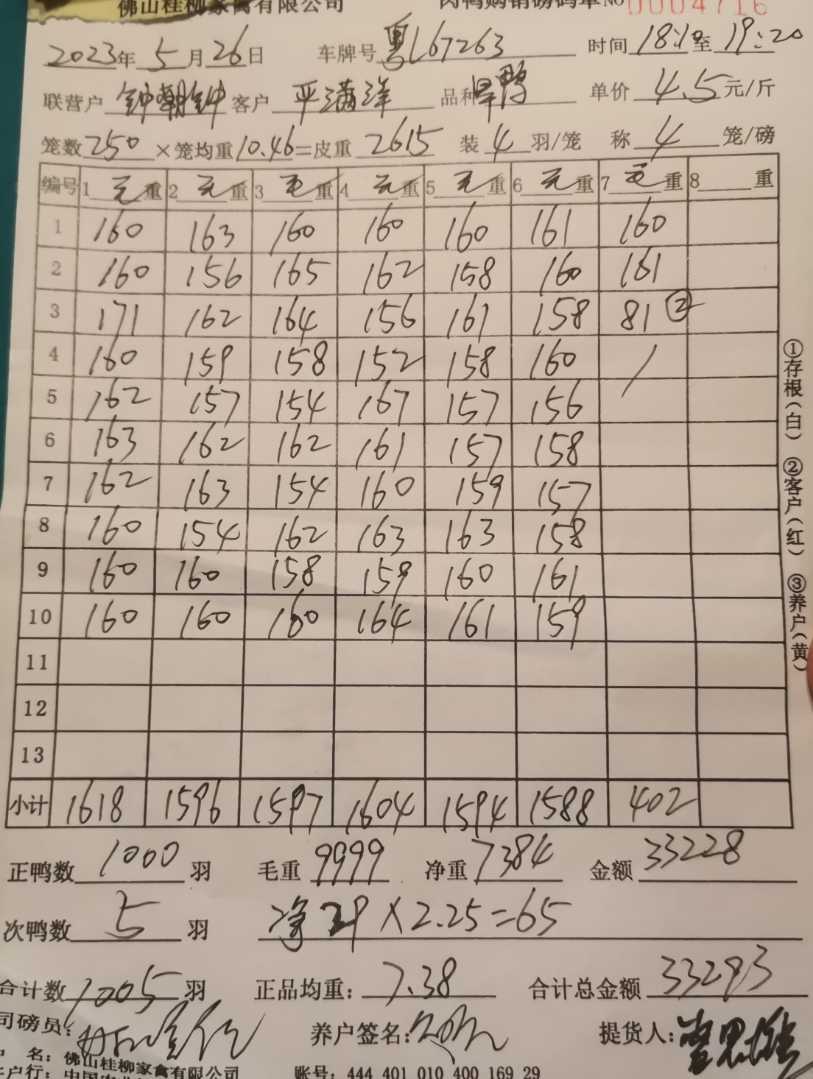 佛山桂柳家禽有限公司 肉鸭购销磅码单 No 0004716
2023年 5 月 26 日 车牌号 粤L67263 时间 18:10 至 19:20
联营户 钟朝钟 客户 平满洋 品种 旱鸭 单价 4.5 元/斤
笼数 250 ×笼均重 10.46 =皮重 2615 装 4 羽/笼 称 4 笼/磅
编号 1 毛 重 2 毛 重 3 毛 重 4 毛 重 5 毛 重 6 毛 重 7 毛 重 8 重
1 160 163 160 160 160 161 160
2 160 156 165 162 158 160 161
3 171 162 164 156 161 158 81 ②
4 160 159 158 152 158 160 /
5 162 157 154 167 157 156
6 163 162 162 161 157 158
7 162 163 154 160 159 157
8 160 154 162 163 163 158
9 160 160 158 159 160 161
10 160 160 160 164 161 159
11
12
13
小计 1618 1596 1597 1604 1594 1588 402
①存根(白) ②客户(红) ③养户(黄)
正鸭数 1000 羽 毛重 9999 净重 7384 金额 33228
次鸭数 5 羽 净 29 × 2.25 = 65
合计数 1005 羽 正品均重: 7.38 合计总金额 33293
司磅员: 养户签名: 提货人:
户 名: 佛山桂柳家禽有限公司
账号: 444 401 010 400 169 29